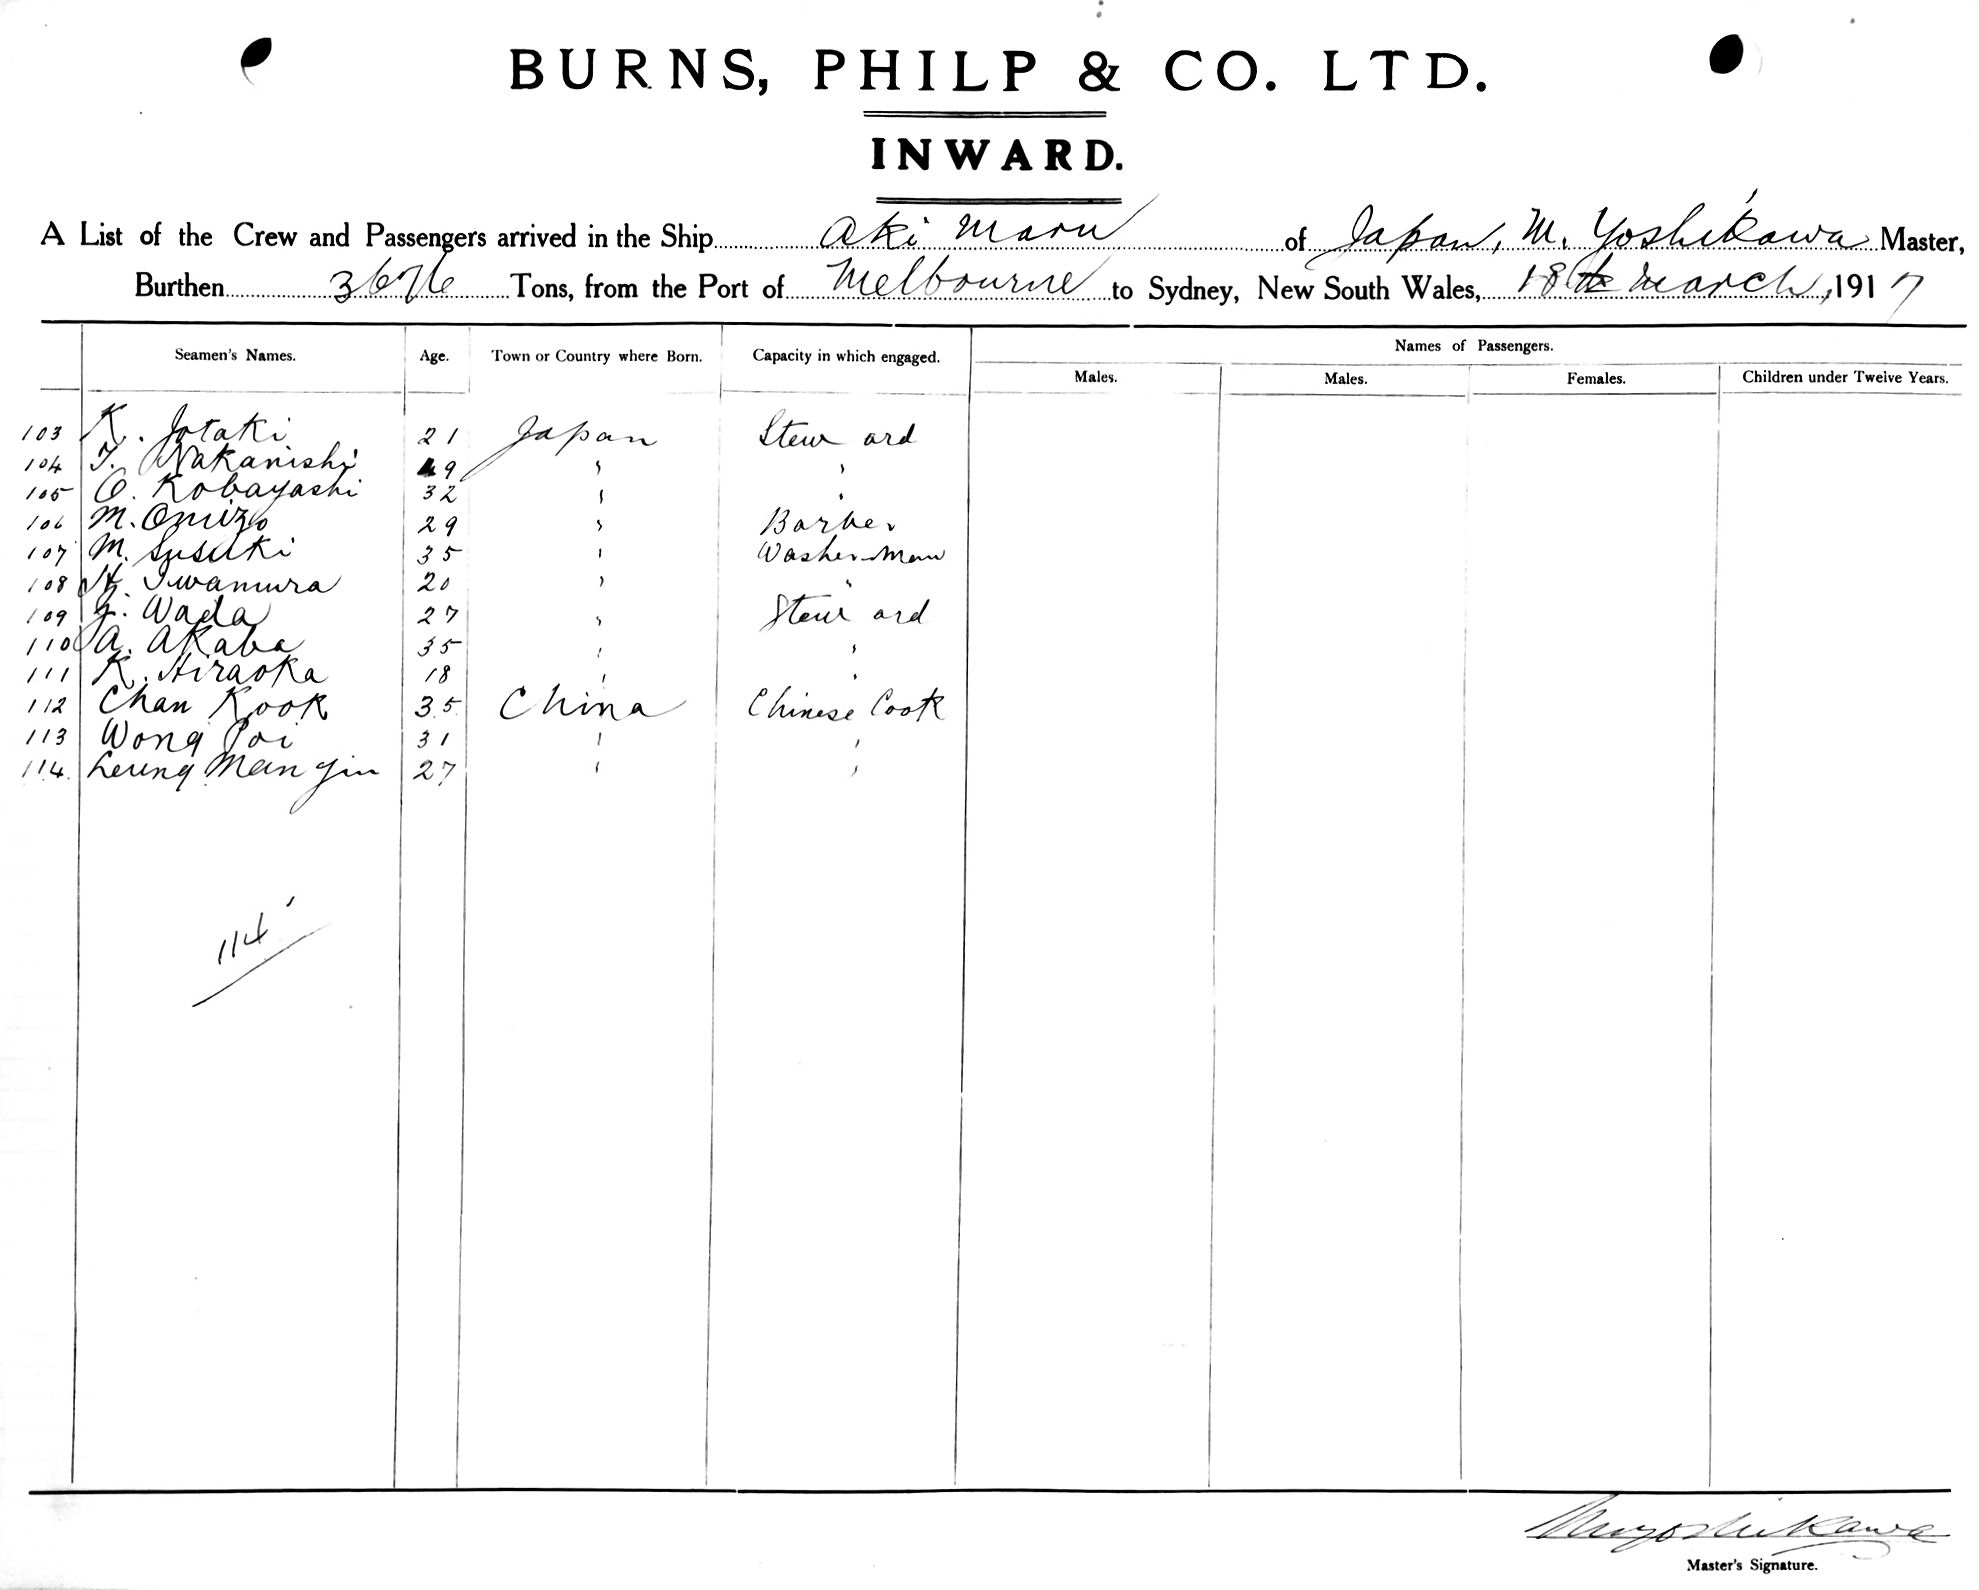 BURNS, PHILP & CO. LTD.
INWARD.
A List of the Crew and Passengers arrived in the Ship Aki Maru of Japan, M. Yoshikawa Master,
Burthen 3676 Tons, from the Port of Melbourne to Sydney, New South Wales, 18th March, 1917
Seamen's Names. Age. Town or Country where Born. Capacity in which engaged. Names of Passengers.
Males. Males. Females. Children under Twelve Years.
103 K. Jotaki 21 Japan Steward
104 T. Nakanishi 49 " "
105 O. Kobayashi 32 " "
106 M. Omizo 29 " Barber
107 M. Susuki 35 " Washer Man
108 H. Iwamura 20 " "
109 Wada 27 " Steward
110 A. Akaba 35 " "
111 K. Hiraoka 18 " "
112 Chan Kook 35 China Chinese Cook
113 Wong Poi 31 " "
114 Leung Man Yin 27 " "
114
M Yoshikawa
Master's Signature.